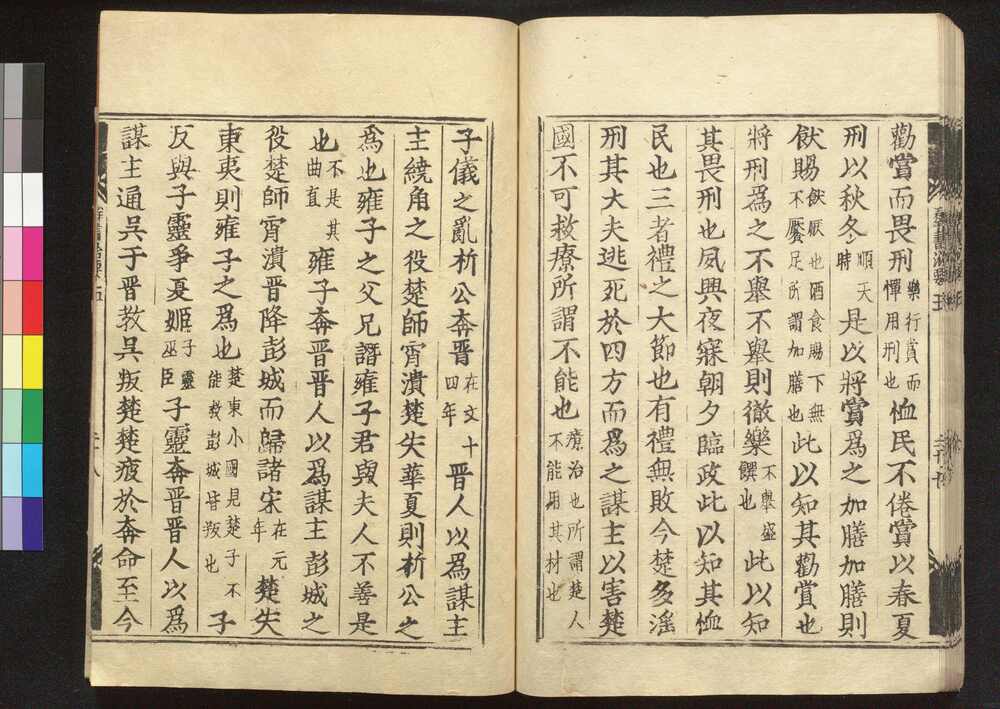 勸賞而畏刑樂行賞而憚用刑也恤民不倦賞以春夏
刑以秋冬順天時是以將賞爲之加膳加膳則
飫賜飫厭也酒食賜下無不饜足所謂加膳也此以知其勸賞也
將刑爲之不舉不舉則徹樂不舉盛饌也此以知
其畏刑也夙興夜寐朝夕臨政此以知其恤
民也三者禮之大節也有禮無敗今楚多淫
刑其大夫逃死於四方而爲之謀主以害楚
國不可救療所謂不能也療治也所謂楚人不能用其材也
子儀之亂析公奔晋在文十四年晋人以爲謀主
主繞角之役楚師宵潰楚失華夏則析公之
爲也雍子之父兄譖雍子君與夫人不善是
也不是其曲直雍子奔晋晋人以爲謀主彭城之
役楚師宵潰晋降彭城而歸諸宋在元年楚失
東夷則雍子之爲也楚東小國見楚子不能救彭城皆叛也子
反與子靈爭夏姬子靈巫臣子靈奔晋晋人以爲
謀主通吳于晋教吳叛楚楚疲於奔命至今